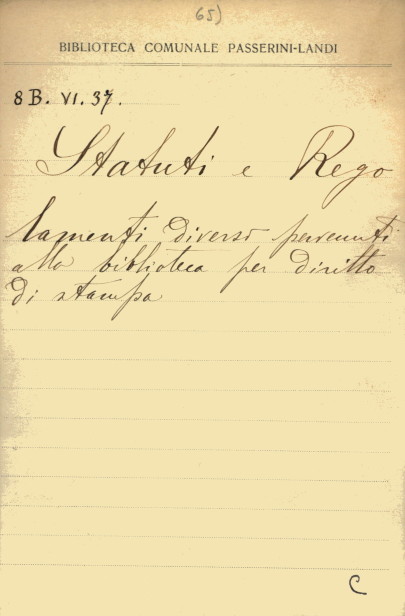 65)
BIBLIOTECA COMUNALE PASSERINI-LANDI
8 B. VI. 37.
Statuti e Rego
lamenti diversi pervenuti
alla biblioteca per diritto
di stampa
C